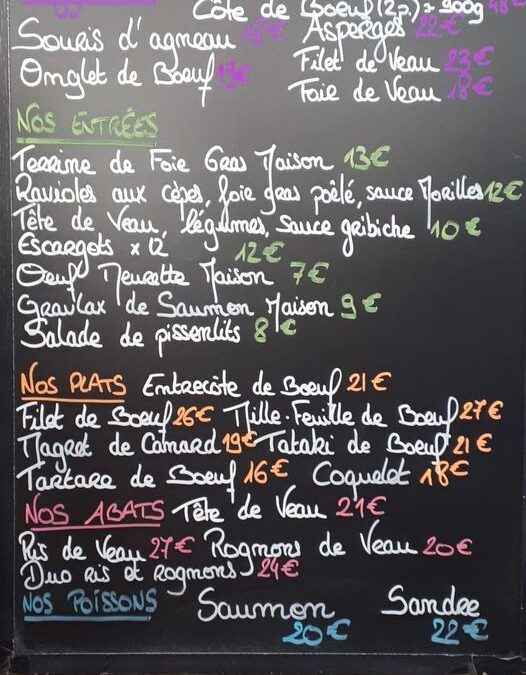 Côte de Boeuf (2p) ± 900g 48€
Souris d'agneau Asperges 22€
Onglet de Boeuf Filet de Veau 23€
Foie de Veau 18€
NOS ENTRÉES
Terrine de Foie Gras Maison 13€
Ravioles aux cèpes, foie gras poêlé, sauce Morilles 12€
Tête de Veau, légumes, sauce gribiche 10€
Escargots x 12 12€
Oeuf Meurette Maison 7€
Gravlax de Saumon Maison 9€
Salade de pissenlits 8€
NOS PLATS Entrecôte de Boeuf 21€
Filet de Boeuf 26€ Mille-Feuille de Boeuf 27€
Magret de Canard 19€ Tataki de Boeuf 21€
Tartare de Boeuf 16€ Coquelet 18€
NOS ABATS Tête de Veau 21€
Ris de Veau 27€ Rognons de Veau 20€
Duo ris et rognons 24€
NOS POISSONS Saumon Sandre
20€ 22€